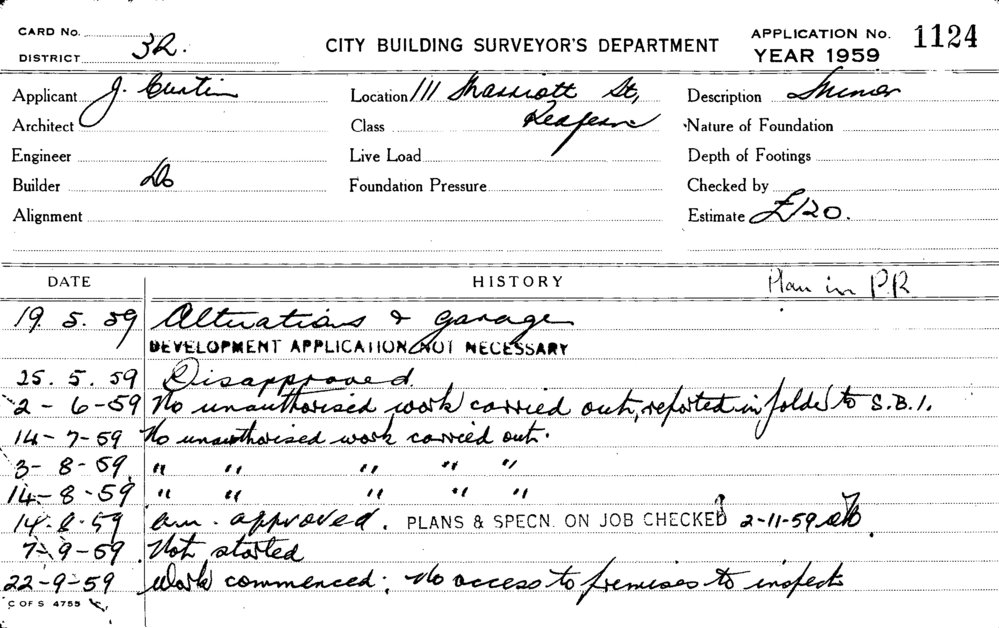 CARD No.
DISTRICT 3R.
CITY BUILDING SURVEYOR'S DEPARTMENT
APPLICATION No. 1124
YEAR 1959
Applicant J. Curtin
Location 111 Marriott St,
Redfern
Description
Architect
Class
Nature of Foundation
Engineer
Live Load
Depth of Footings
Builder Do
Foundation Pressure
Checked by
Alignment
Estimate £120.
DATE HISTORY Plan in PR
19. 5. 59 Alterations & garage
DEVELOPMENT APPLICATION NOT NECESSARY
25. 5. 59 Disapproved.
2-6-59 No unauthorised work carried out, reported in folder to S.B.I.
14-7-59 No unauthorised work carried out.
3-8-59 " " " " "
14-8-59 " " " " "
14-8-59 am. approved. PLANS & SPECN. ON JOB CHECKED 2-11-59
7-9-59 Not started
22-9-59 Work commenced; No access to premises to inspect
C OF S 4755